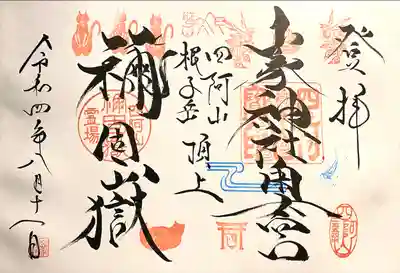 登拝
山家神社奥宮
四阿山
根子岳
頂上
禰固嶽
霊場
令和四年八月十一日